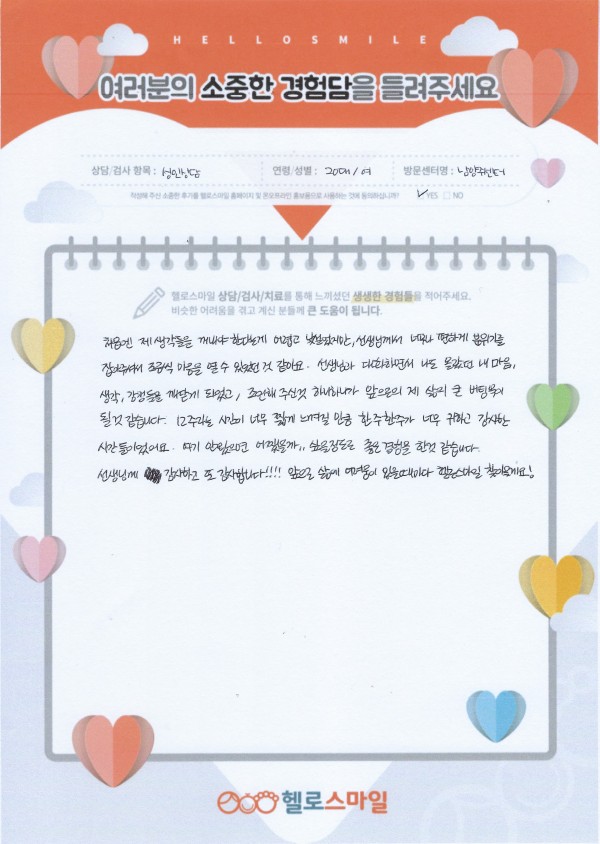 HELLOSMILE
여러분의 소중한 경험담을 들려주세요
상담/검사 항목 : 성인상담 연령/성별 : 20대/여 방문센터명 : 남양주센터
작성해 주신 소중한 후기를 헬로스마일 홈페이지 및 온오프라인 홍보용으로 사용하는 것에 동의하십니까? ✓ YES □ NO
헬로스마일 상담/검사/치료를 통해 느끼셨던 생생한 경험들을 적어주세요.
비슷한 어려움을 겪고 계신 분들께 큰 도움이 됩니다.
처음엔 제 생각들을 꺼내야 한다는게 어렵고 낯설었지만, 선생님께서 너무나 편하게 분위기를
잡아주셔서 조금씩 마음을 열 수 있었던 것 같아요. 선생님과 대화하면서 나도 몰랐던 내 마음,
생각, 감정들을 깨닫게 되었고, 조언해 주신것 하나하나가 앞으로의 제 삶의 큰 버팀목이
될것 같습니다. 12주라는 시간이 너무 짧게 느껴질 만큼 한주한주가 너무 귀하고 감사한
시간들이었어요. 여기 안왔으면 어쨌을까,, 싶을정도로 좋은 경험을 한것 같습니다.
선생님께 감사하고 또 감사합니다!!!! 앞으로 삶에 어려움이 있을때마다 헬로스마일 찾아올게요!
헬로스마일